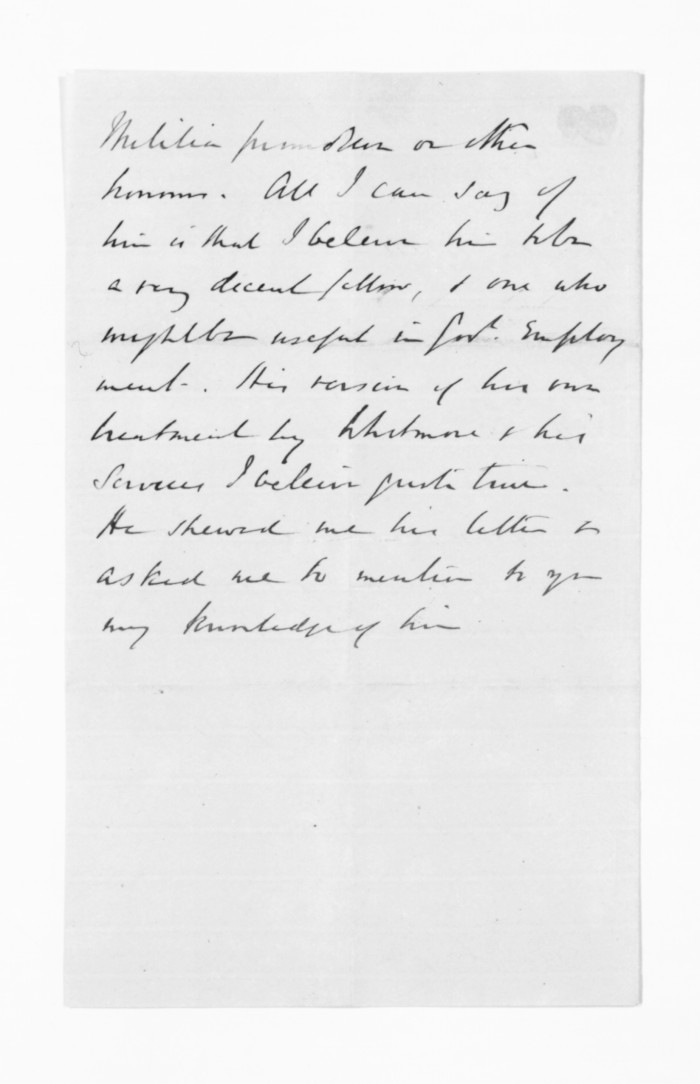 Militia promotion or other
honours. All I can say of
him is that I believe him to be
a very decent fellow, & one who
might be useful in Govt. Employ
ment -. His version of his own
treatment by Whitmore & his
Services I believe quite true.
He shewed me his letter &
asked me to mention to you
my knowledge of him